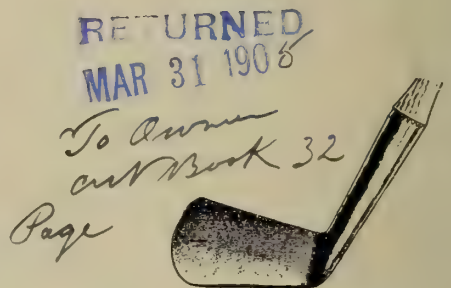 RETURNED
MAR 31 1905
To Owner
cut Book 32
Page